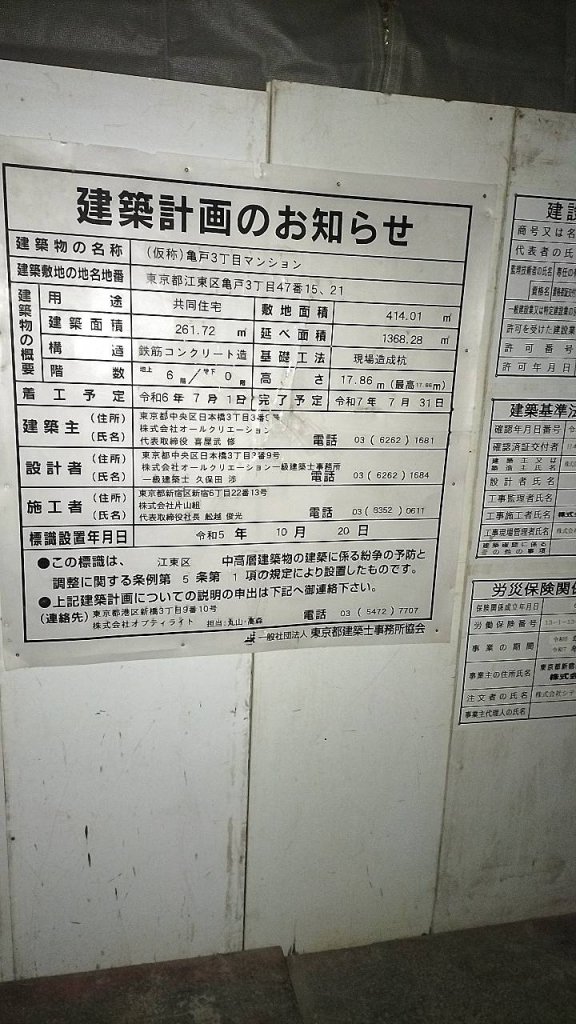 建築計画のお知らせ
建築物の名称 (仮称)亀戸3丁目マンション
建築敷地の地名地番 東京都江東区亀戸3丁目47番15、21
建築物の概要
用途 共同住宅 敷地面積 414.01 ㎡
建築面積 261.72 ㎡ 延べ面積 1368.28 ㎡
構造 鉄筋コンクリート造 基礎工法 現場造成杭
階数 地上 6 階/地下 0 階 高さ 17.86 m (最高17.86m)
着工予定 令和6年 7月 1日 完了予定 令和7年 7月 31日
建築主 (住所) 東京都中央区日本橋3丁目3番
(氏名) 株式会社オールクリエーション
代表取締役 喜屋武 修 電話 03 (6262) 1681
設計者 (住所) 東京都中央区日本橋3丁目2番9号
(氏名) 株式会社オールクリエーション一級建築士事務所
一級建築士 久保田 渉 電話 03 (6262) 1684
施工者 (住所) 東京都新宿区新宿6丁目22番13号
(氏名) 株式会社片山組
代表取締役社長 舩越 俊光 電話 03 (8352) 0611
標識設置年月日 令和5 年 10 月 20 日
●この標識は、 江東区 中高層建築物の建築に係る紛争の予防と
調整に関する条例第 5 条第 1 項の規定により設置したものです。
●上記建築計画についての説明の申出は下記へ御連絡下さい。
(連絡先) 東京都港区新橋3丁目9番10号
株式会社オプティライト 担当:丸山・高森 電話 03 (5472) 7707
一般社団法人 東京都建築士事務所協会
建設
商号又は名
代表者の氏
監理技術者の氏名 専任の有
資格名
一般建設業又は特定建設業の
許可を受けた建設業
許可番号
許可年月日
建築基準法
確認年月日番号
確認済証交付者
建築主又は築造主氏名
設計者氏名
工事監理者氏名
工事施工者氏名 株式
工事現場管理者氏名
建築確認に係るその他の事項
労災保険関係
保険関係成立年月日
労働保険番号 13-1-13
事業の期間 令和6 令和7
事業主の住所氏名 東京都新宿 株式会
注文者の氏名 株式会社シテ
事業主代理人の氏名